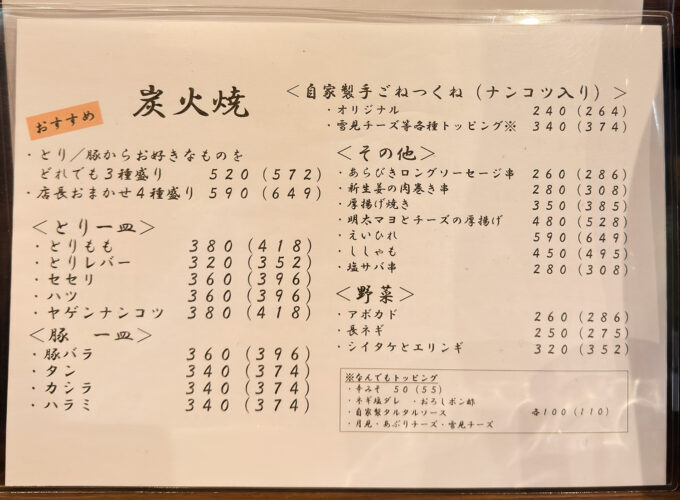 炭火焼
おすすめ
・とり／豚からお好きなものを
どれでも3種盛り 520(572)
・店長おまかせ4種盛り 590(649)
＜とり一皿＞
・とりもも 380(418)
・とりレバー 320(352)
・セセリ 360(396)
・ハツ 360(396)
・ヤゲンナンコツ 380(418)
＜豚 一皿＞
・豚バラ 360(396)
・タン 340(374)
・カシラ 340(374)
・ハラミ 340(374)
＜自家製手ごねつくね（ナンコツ入り）＞
・オリジナル 240(264)
・雪見チーズ等各種トッピング※ 340(374)
＜その他＞
・あらびきロングソーセージ串 260(286)
・新生姜の肉巻き串 280(308)
・厚揚げ焼き 350(385)
・明太マヨとチーズの厚揚げ 480(528)
・えいひれ 590(649)
・ししゃも 450(495)
・塩サバ串 280(308)
＜野菜＞
・アボカド 260(286)
・長ネギ 250(275)
・シイタケとエリンギ 320(352)
※なんでもトッピング
・辛みそ 50(55)
・ネギ塩ダレ ・おろしポン酢
・自家製タルタルソース 各100(110)
・月見・あぶりチーズ・雪見チーズ